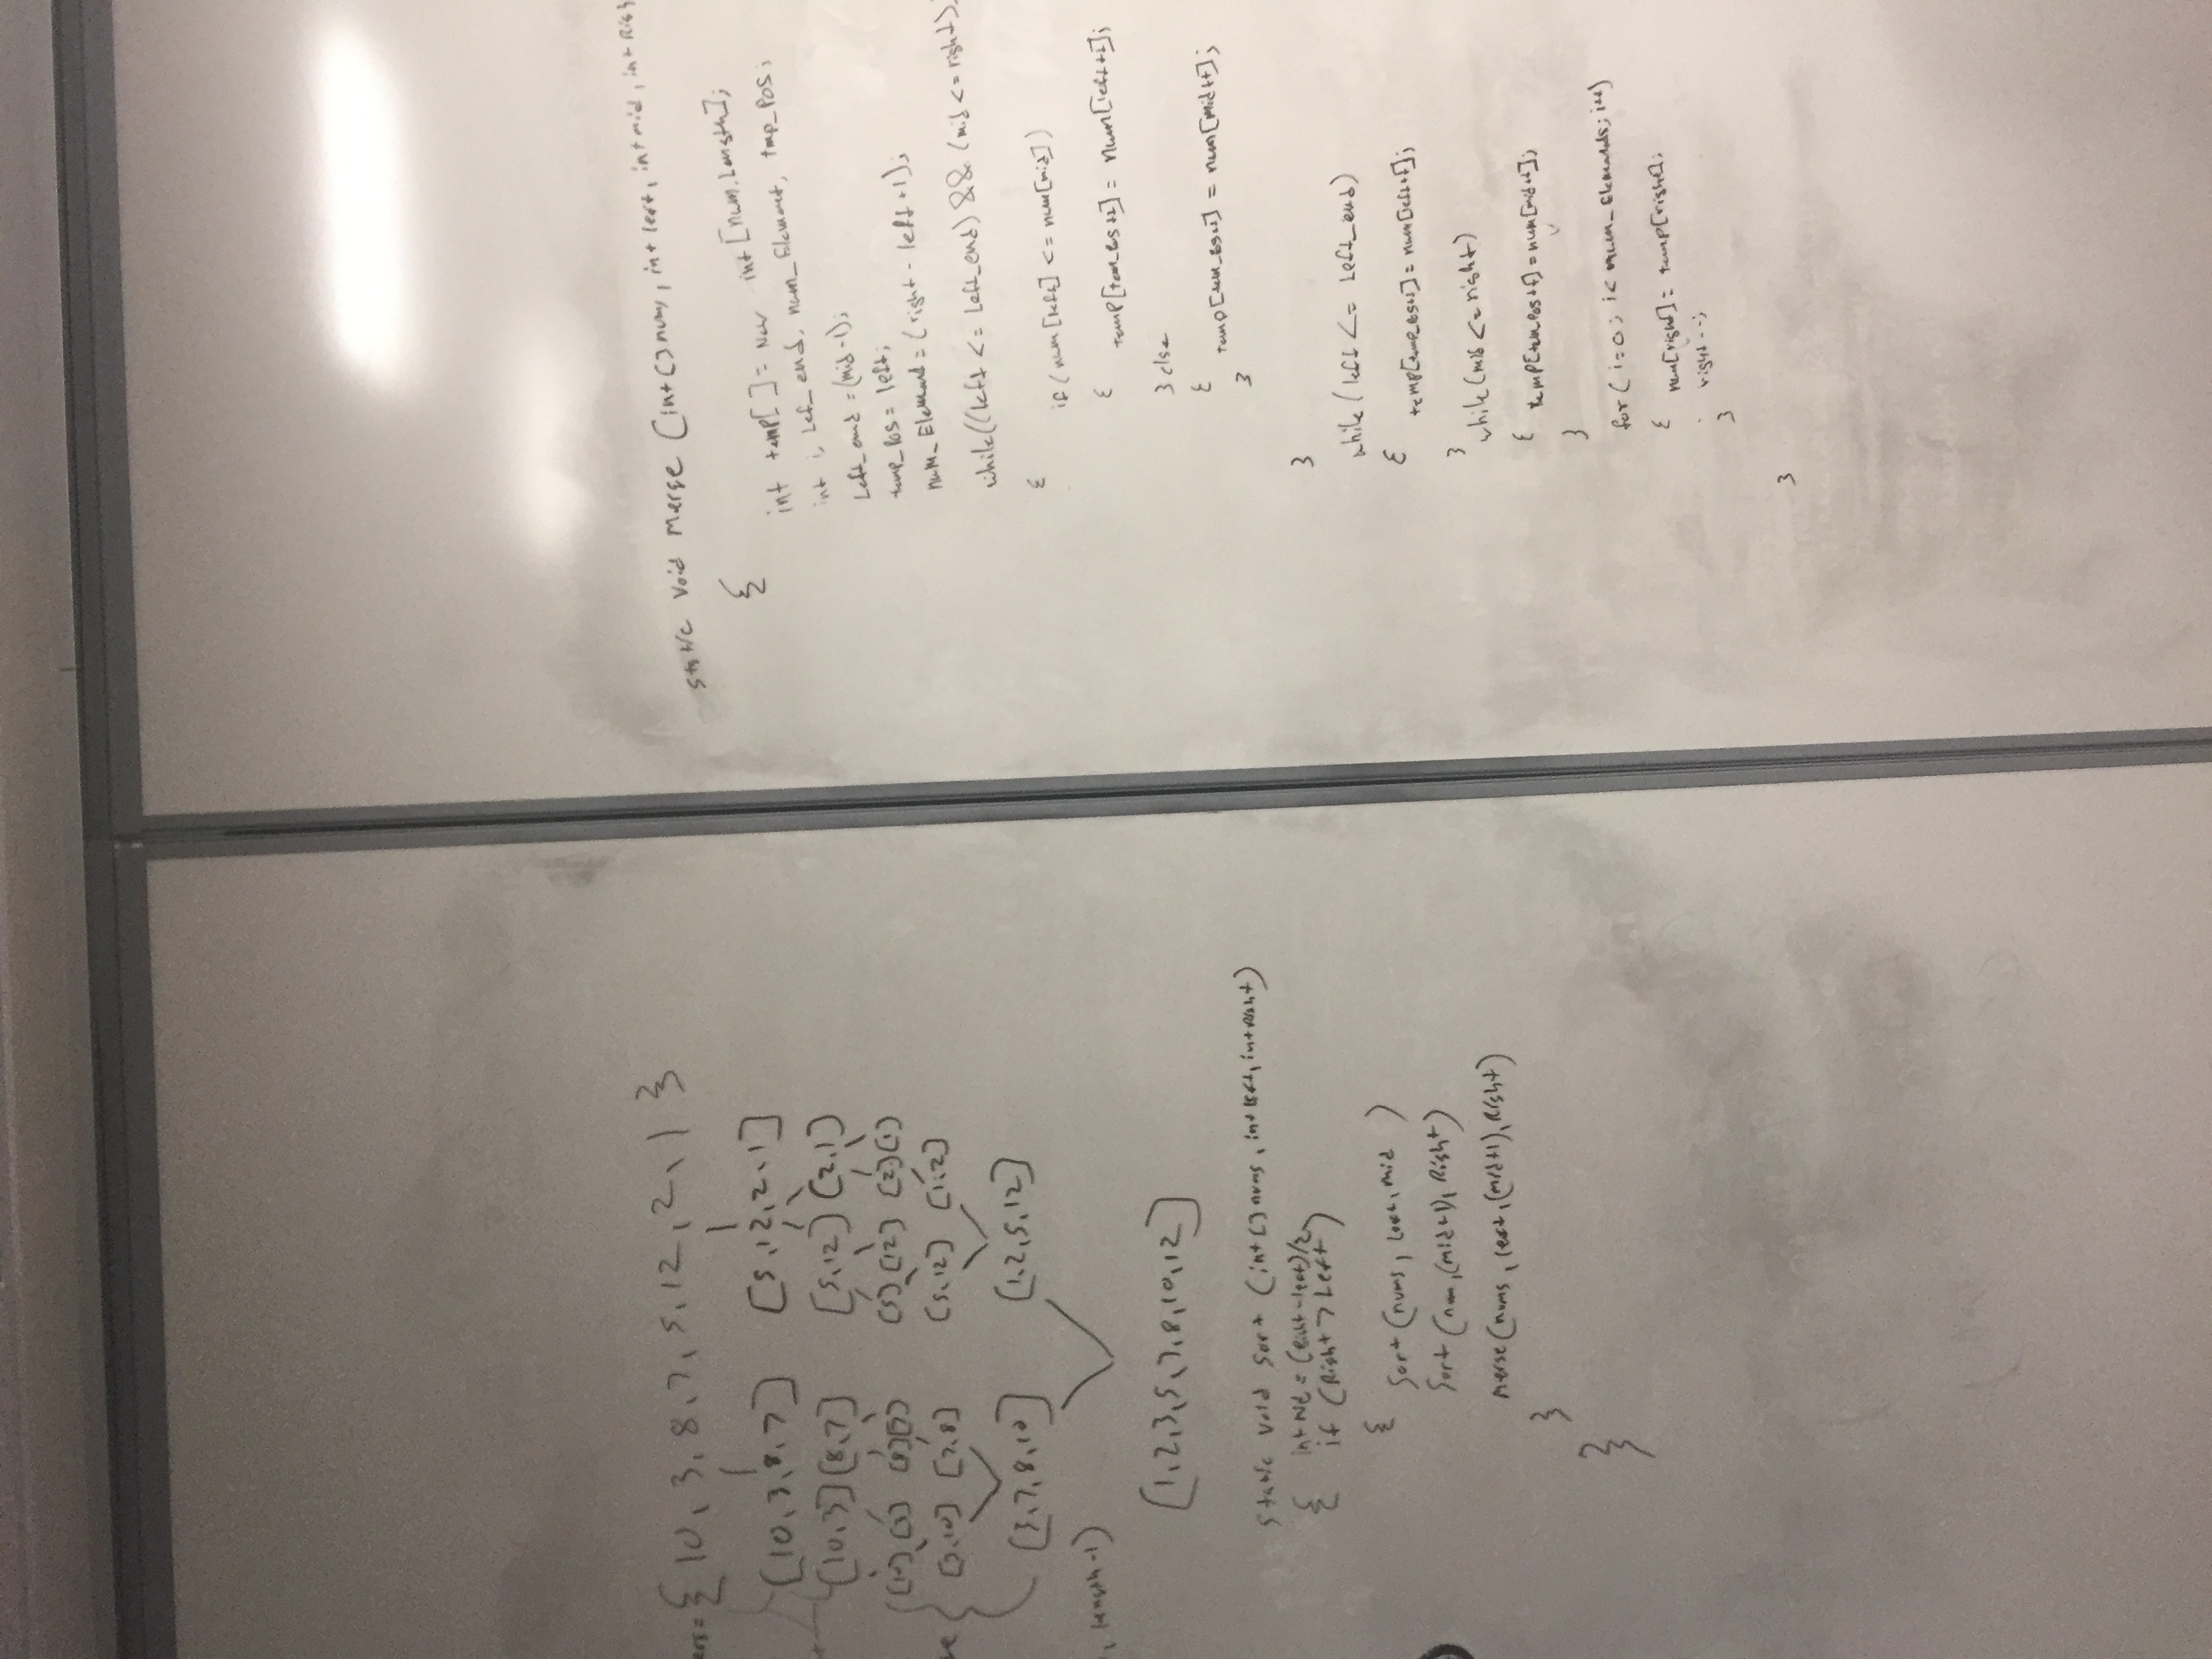 = { 10, 3, 8, 7, 5, 12, 2, 1 }
[10, 3, 8, 7] [5, 12, 2, 1]
[10, 3] [8, 7] [5, 12] [2, 1]
[10] [3] [8] [7] [5] [12] [2] [1]
[3, 10] [7, 8] [5, 12] [1, 2]
[3, 7, 8, 10] [1, 2, 5, 12]
, length-1)
[1, 2, 3, 5, 7, 8, 10, 12]
static void sort (int[] nums, int left, int Right)
{ int Mid = (Right-left)/2
if (Right > Left)
{
Sort (nums, left, mid )
Sort (num, (mid+1), Right)
merge (nums, left, (mid+1), Right)
}
}
static void merge (int[] nums, int left, int mid, int Righ
{
int temp[ ] = New int [num.Length];
int i, Lef_end, num_Element, tmp_Pos;
Left_end = (mid-1);
temp_Pos = left;
num_Element = (right - left +1);
while((left <= Left_end) && (mid <= right))
{
if (num[left] <= num[mid])
{ temp[tem_Pos++] = num[left++];
} else
{ temp[tem_Pos++] = num[mid++];
}
}
while (left <= Left_end)
{ temp[tmp_Pos++] = num[left++];
}
while (mid <= right)
{ temp[tem_Pos++] = num[mid++];
}
for ( i=0 ; i< num_Elements; i++)
{ num[right] = temp[right];
right--;
}
}